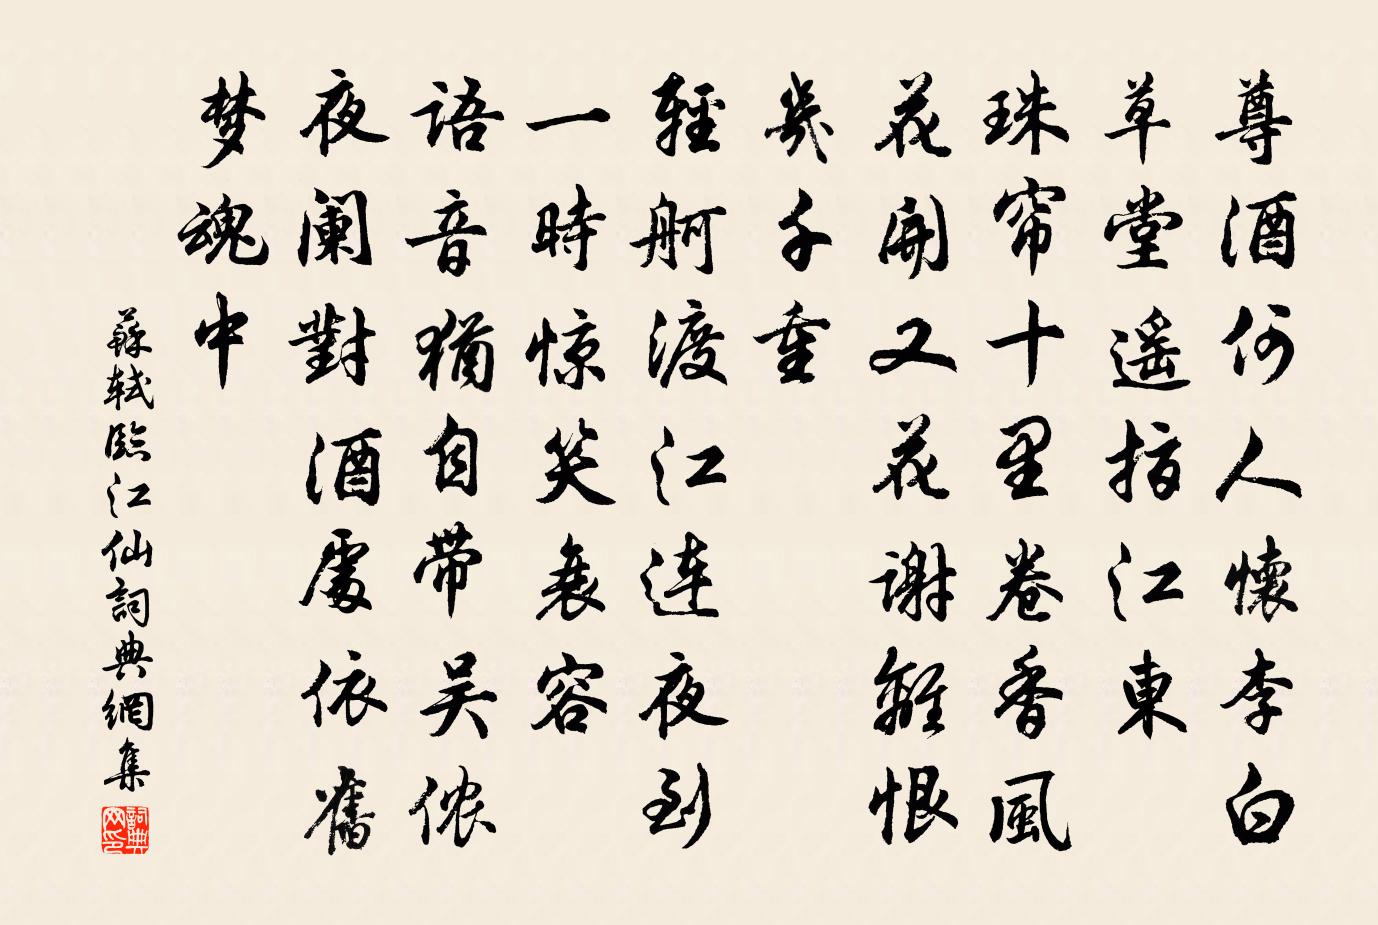 尊酒何人懷李白
草堂遥指江東
珠帘十里卷香風
花開又花謝離恨
幾千重
輕舸渡江連夜到
一時惊笑衰容
語音猶自带吴侬
夜阑對酒處依舊
梦魂中
蘇軾臨江仙詞典網集
詞典
网印